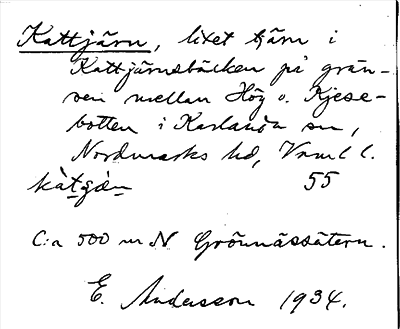 Kattjärn, litet tjärn i
Kattjärnsbäcken på grän-
sen mellan Hög o. Kjese-
botten i Karlanda sn,
Nordmarks hd, Vrml l.
kàtʒà̱n 55
C:a 500 m N Grönnässätern.
E. Andersson 1934.